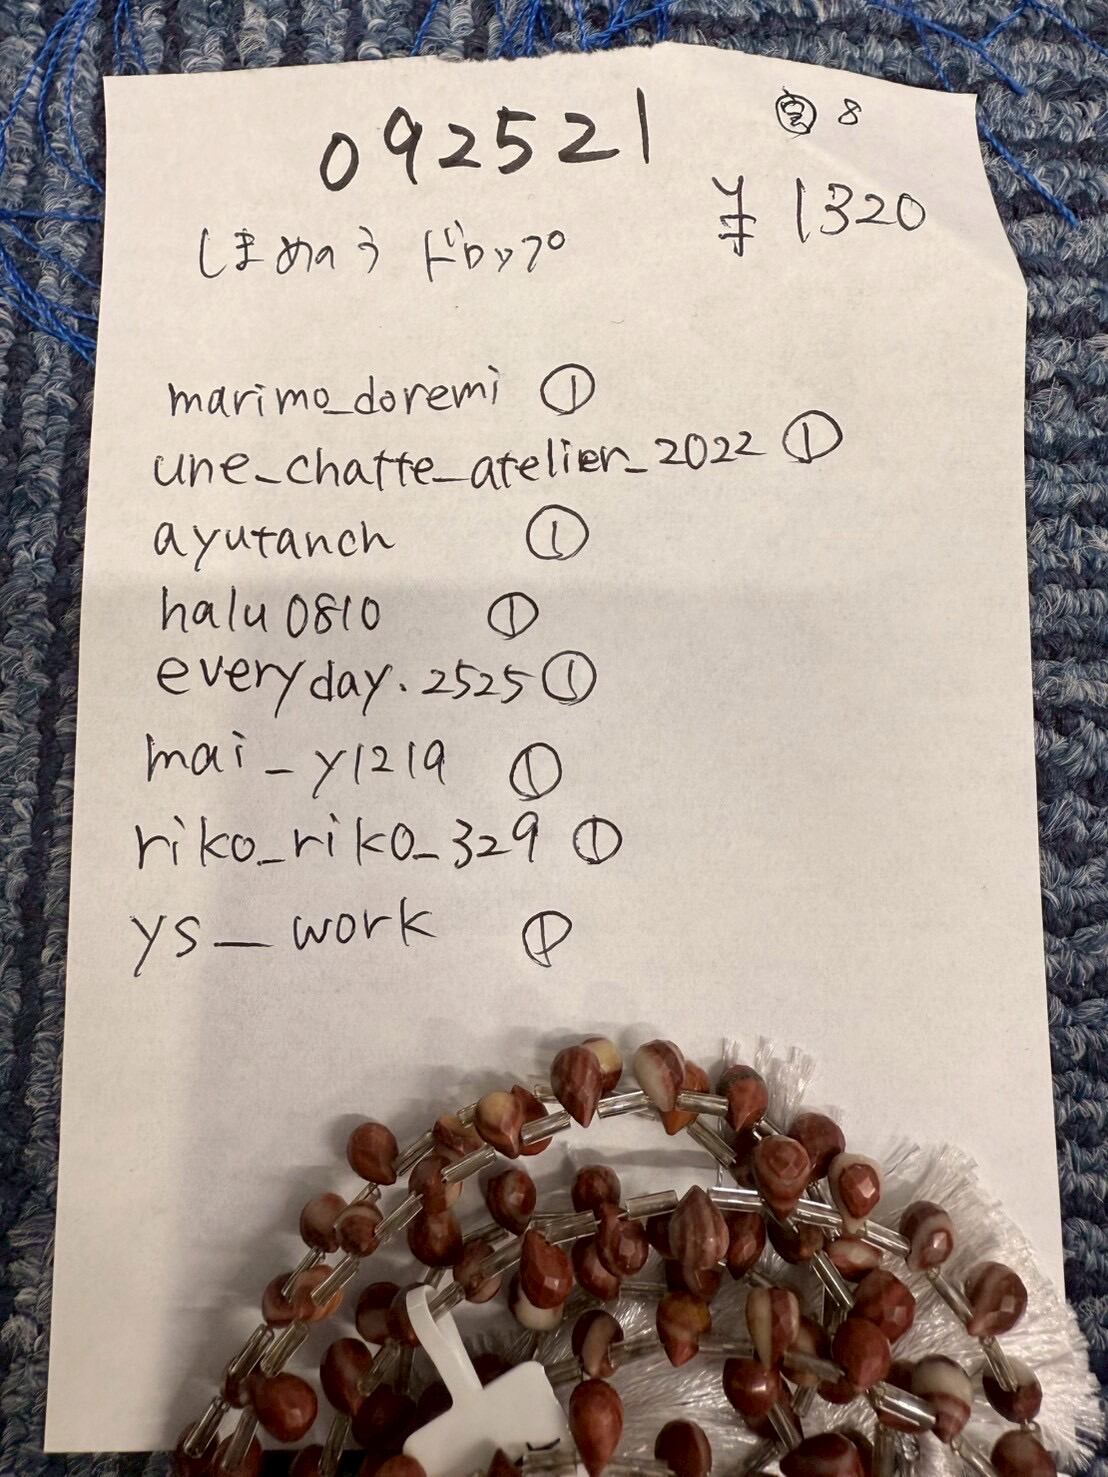 092521
8
¥1320
しまめのう ドロップ
marimo_doremi ①
une_chatte_atelier_2022 ①
ayutanch ①
halu0810 ①
everyday.2525 ①
mai_y1219 ①
riko_riko_329 ①
ys__work ①